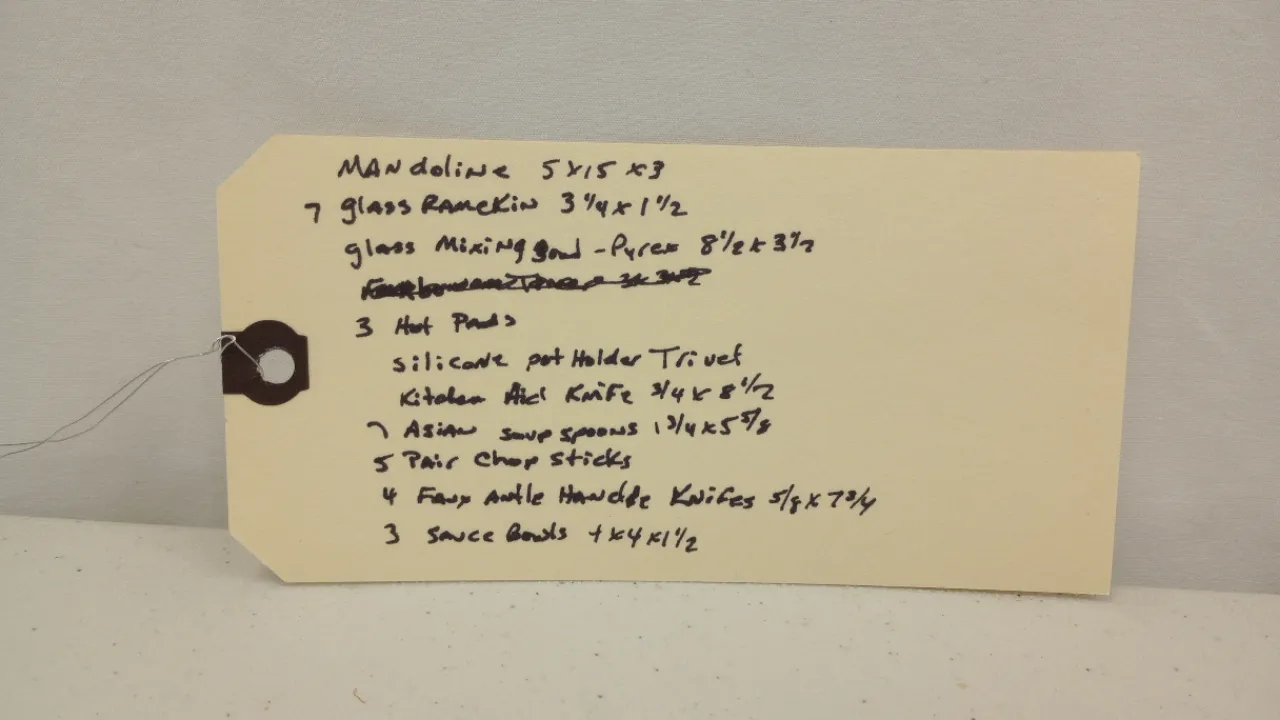 MANdoline 5 x 15 x 3
7 glass RAMEKIN 3 1/4 x 1 1/2
glass Mixing Bowl - Pyrex 8 1/2 x 3 1/2
3 Hot Pads
silicone pot Holder Trivet
Kitchen Aid KNiFe 3/4 x 8 1/2
7 ASIAN soup spoons 1 3/4 x 5 5/8
5 PAir Chop Sticks
4 Faux Antle HANdle KNiFes 5/8 x 7 3/4
3 Sauce Bowls x 4 x 1 1/2